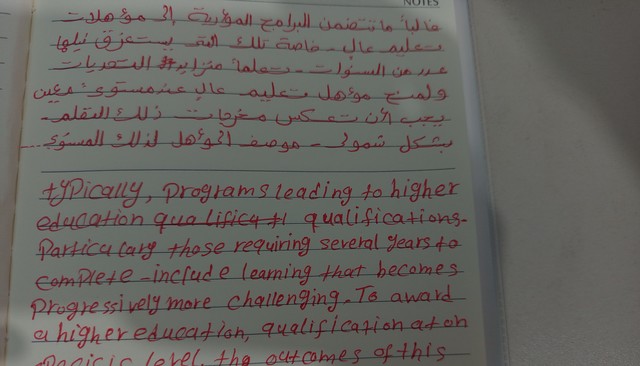 NOTES
غالباً ما تتضمن البرامج المؤدية إلى مؤهلات
تعليم عالٍ - خاصة تلك التي يستغرق نيلها
عدد من السنوات - تعلماً متزايد التحديات
ولمنح مؤهل تعليم عالٍ عند مستوى معين
يجب الأن تعكس مخرجات ذلك التعلم -
بشكل شمولي - موصف المؤهل لذلك المستوى
typically, programs leading to higher
education qualificati qualifications-
Particulary those requiring several years to
complete-include learning that becomes
progressively more challenging. To award
a higher education, qualification at an
level, the outcomes of this